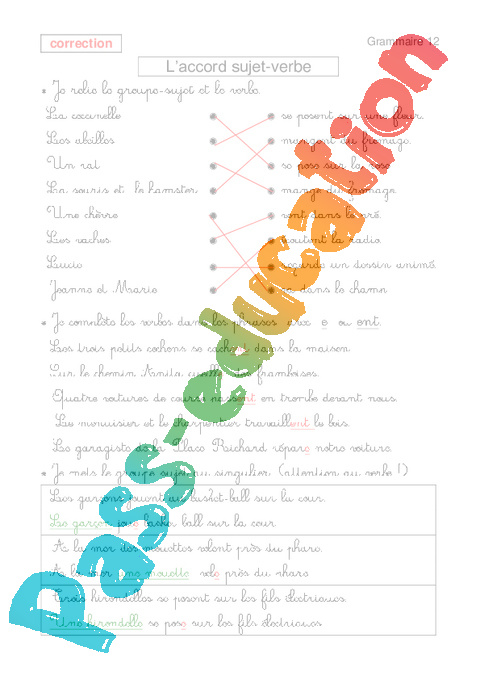 correction
Grammaire 12
L'accord sujet-verbe
* Je relie le groupe-sujet et le verbe.
La coccinelle se posent sur une fleur.
Les abeilles mangent du fromage.
Un rat se pose sur la rose
La souris et le hamster mange du fromage
Une chèvre vont dans le pré
Les vaches écoutent la radio
Lucie regarde un dessin animé
Jeanne et Marie va dans le champ
* Je complète les verbes dans les phrases avec e ou ent.
Les trois petits cochons se cachent dans la maison.
Sur le chemin Anita cueille des framboises.
Quatre voitures de course passent en trombe devant nous.
Le menuisier et le charpentier travaillent le bois.
Le garagiste de la Place Raichard répare notre voiture.
* Je mets le groupe sujet au singulier. (attention au verbe !)
Les garçons jouent au basket-ball sur la cour.
Le garçon joue basket ball sur la cour
À la mer des mouettes volent près du phare.
À la mer une mouette vole près du phare
Trois hirondelles se posent sur les fils électriques.
Une hirondelle se pose sur les fils électriques
Pass-education